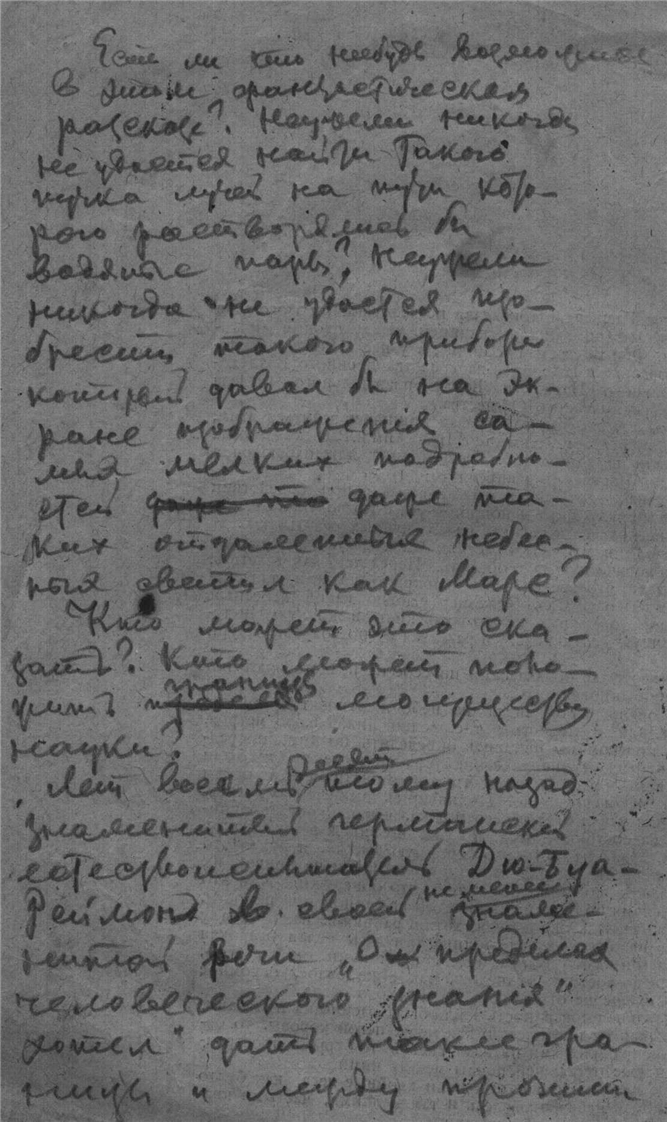 Есть ли что нибудь возможное
в этом фантастическом
рассказе? Неужели никогда
не удастся найти такого
пучка лучей на пути кото-
рого растворялись бы
водяные пары? Неужели
никогда не удастся изо-
брести такого прибора
который давал бы на эк-
ране изображения са-
мых мелких подробно-
стей даже та-
ких отдаленных небес-
ных светил как Марс?
Кто может это ска-
зать? Кто может поло-
жить границы могуществу
науки?
Лет восемьдесят тому назад
знаменитый германский
естествоиспытатель Дю-Буа-
Реймон в своей не менее знаме-
нитой речи „О пределах
человеческого знания"
хотел дать такие гра-
ницы и между прочим